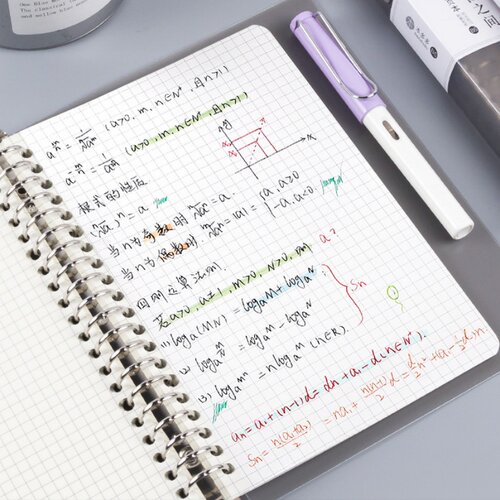 One Blue
The classical
and mellow blue
a^(m/n) = 1/ⁿ√a^m (a>0, m, n∈N*, 且n>1)
a^(-m/n) = 1/ⁿ√a^m (a>0, m, n∈N*, 且n>1)
根式的性质
(ⁿ√a)^n = a.
当n为奇数时 ⁿ√a^n = a.
当n为偶数时 ⁿ√a^n = |a| = {a, a≥0
-a, a<0.
运算法则.
若a>0, a≠1, M>0, N>0, 则
(1) log_a(MN) = log_a M + log_a N
(2) log_a M/N = log_a M - log_a N
(3) log_a M^n = n log_a M (n∈R).
Sn
a_n = a_1 + (n-1)d = dn + a_1 - d (n∈N*).
Sn = n(a_1+a_n)/2 = na_1 + n(n-1)/2 d = d/2 n² + (a_1 - 1/2 d)n.